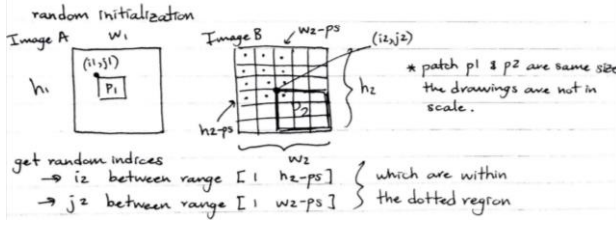 random initialization
Image A
w1
Image B
w2-ps
(i2,j2)
(i1,j1)
h1
P1
P2
h2
* patch p1 & p2 are same size
the drawings are not in
scale.
h2-ps
w2
get random indices
→ i2 between range [ 1 h2-ps ]
→ j2 between range [ 1 w2-ps ]
which are within
the dotted region